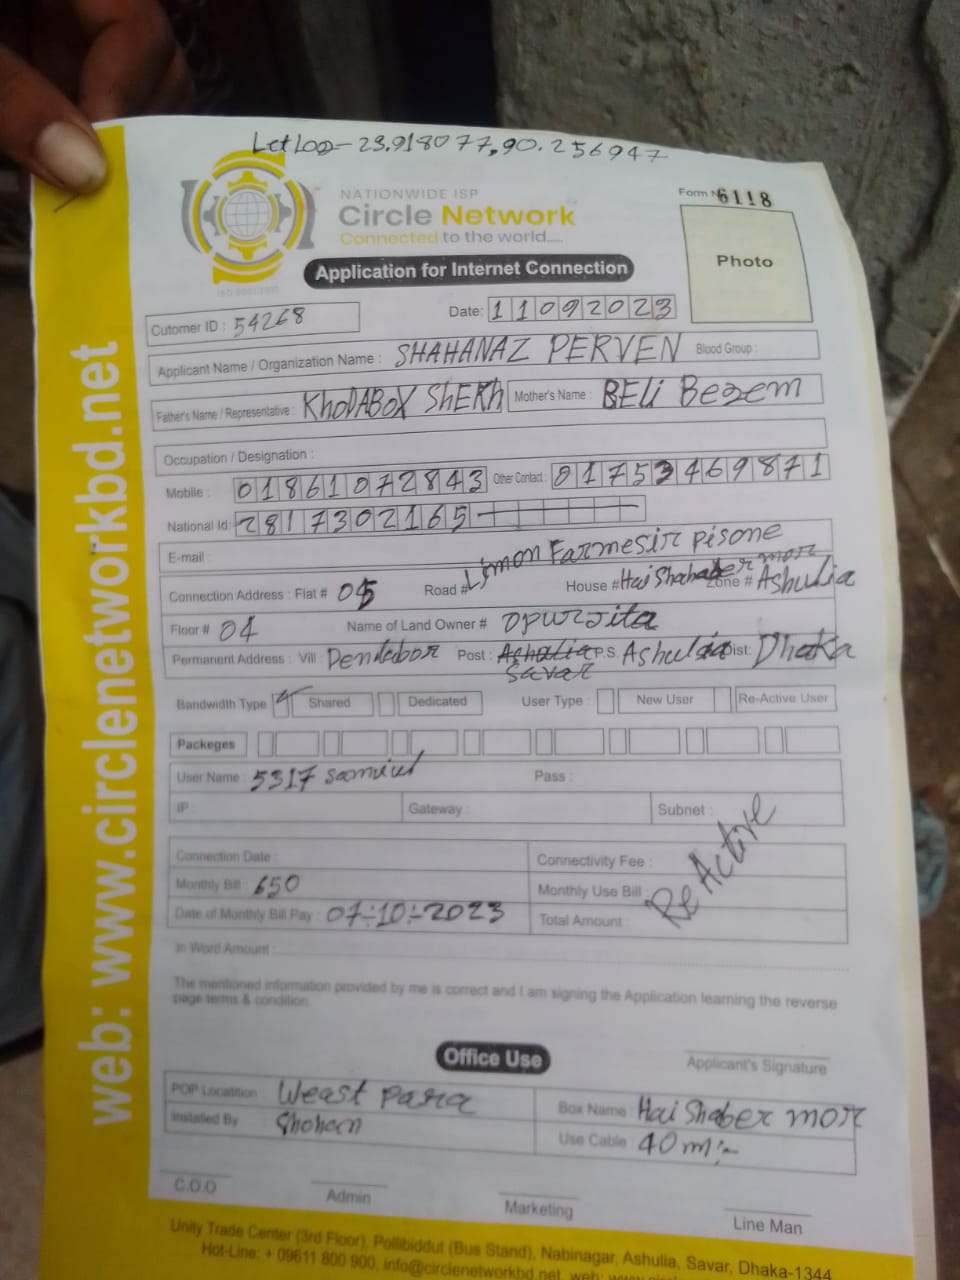 Let Log - 23.918077, 90.256947
NATIONWIDE ISP
Circle Network
Connected to the world.....
ISO 9001:2015
Form N 6118
Photo
Application for Internet Connection
Cutomer ID : 54268
Date: 11092023
Applicant Name / Organization Name : SHAHANAZ PERVEN Blood Group :
Father's Name / Representative : KHODABOX SHEKH Mother's Name : BELI Begem
Occupation / Designation :
Mobile : 01861072843 Other Contact : 01753469871
National Id: 2817302165
E-mail :
Limon Farmesir Pisone
Connection Address : Flat # 05 Road # House # Hai Shahaber mor Zone # Ashulia
Floor # 04 Name of Land Owner # opurjita
Permanent Address : Vill : Dendabor Post : Ashulia Savar P.S Ashulia Dist: Dhaka
Bandwidth Type Shared Dedicated User Type : New User Re-Active User
Packeges
User Name : 5317 samiul Pass :
IP : Gateway : Subnet :
Connection Date : Connectivity Fee :
Monthly Bill : 650 Monthly Use Bill :
Re Active
Date of Monthly Bill Pay : 07-10-2023 Total Amount :
In Word Amount :
The mentioned information provided by me is correct and I am signing the Application learning the reverse
page terms & condition.
Office Use
Applicant's Signature
POP Locatition : Weast para Box Name : Hai Shaber mor
Installed By Shohan Use Cable : 40 m
C.O.O Admin Marketing Line Man
Unity Trade Center (3rd Floor), Pollibiddut (Bus Stand), Nabinagar, Ashulia, Savar, Dhaka-1344
Hot-Line: + 09611 800 900, info@circlenetworkbd.net, web:
web: www.circlenetworkbd.net